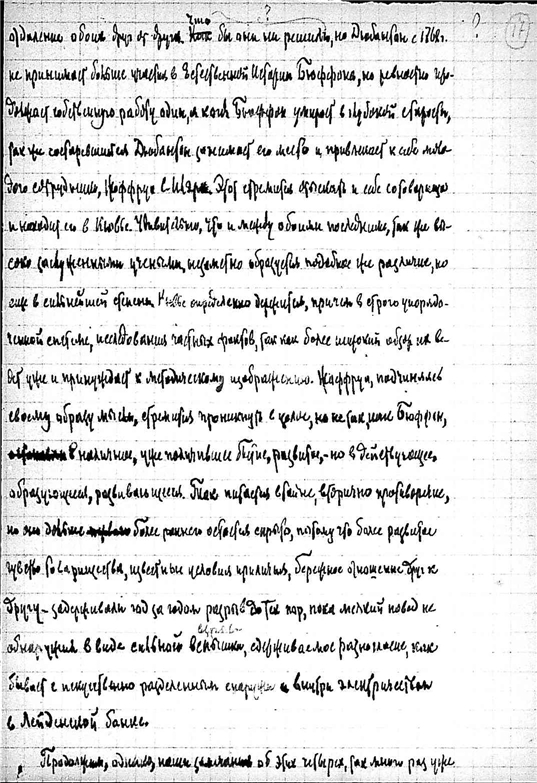 что ? ? 17
отдаление обоих друг от друга. бы они ни решили, но Добантон с 1768 г.
не принимает больше участия в Естественной Истории Бюффона, но ревностно про-
должает собственную работу один, а когда Бюффон умирает в глубокой старости,
так же состаревшийся Добантон занимает его место и привлекает к себе моло-
дого сотрудника, Жоффруа Этот стремится отыскать и себе сотоварища
и находит его в Кювье. Удивительно, что и между обоими последними, так же вы-
соко заслуженными учеными, незаметно образуется подобное же различие, но
еще в сильнейшей степени. Кювье определенно держится, причем в строго упорядо-
ченной системе, исследования частных фактов, так как более широкий обзор их ве-
дет уже и принуждает к методическому изображению. Жоффруа, подчиняясь
своему образу мысли, стремится проникнуть в целое, но не так, как Бюффон,
в наличное, уже получившее бытие, развитое, - но в действующее,
образующееся, развивающееся. Так питается втайне, вторично противоречие,
но оно дольше более раннего остается скрыто, потому что более развитое
чувство товарищества, известные условия приличия, бережное отношение друг к
другу - задерживали год за годом разрыв до тех пор, пока мелкий повод не
обнаружил в виде сильной вспышки, сдерживаемое разногласие, как
бывает с искусственно разделенным снаружи и внутри электричеством
в Лейденской банке.
Продолжим, однако, наши замечания об этих четверых, так много раз уже